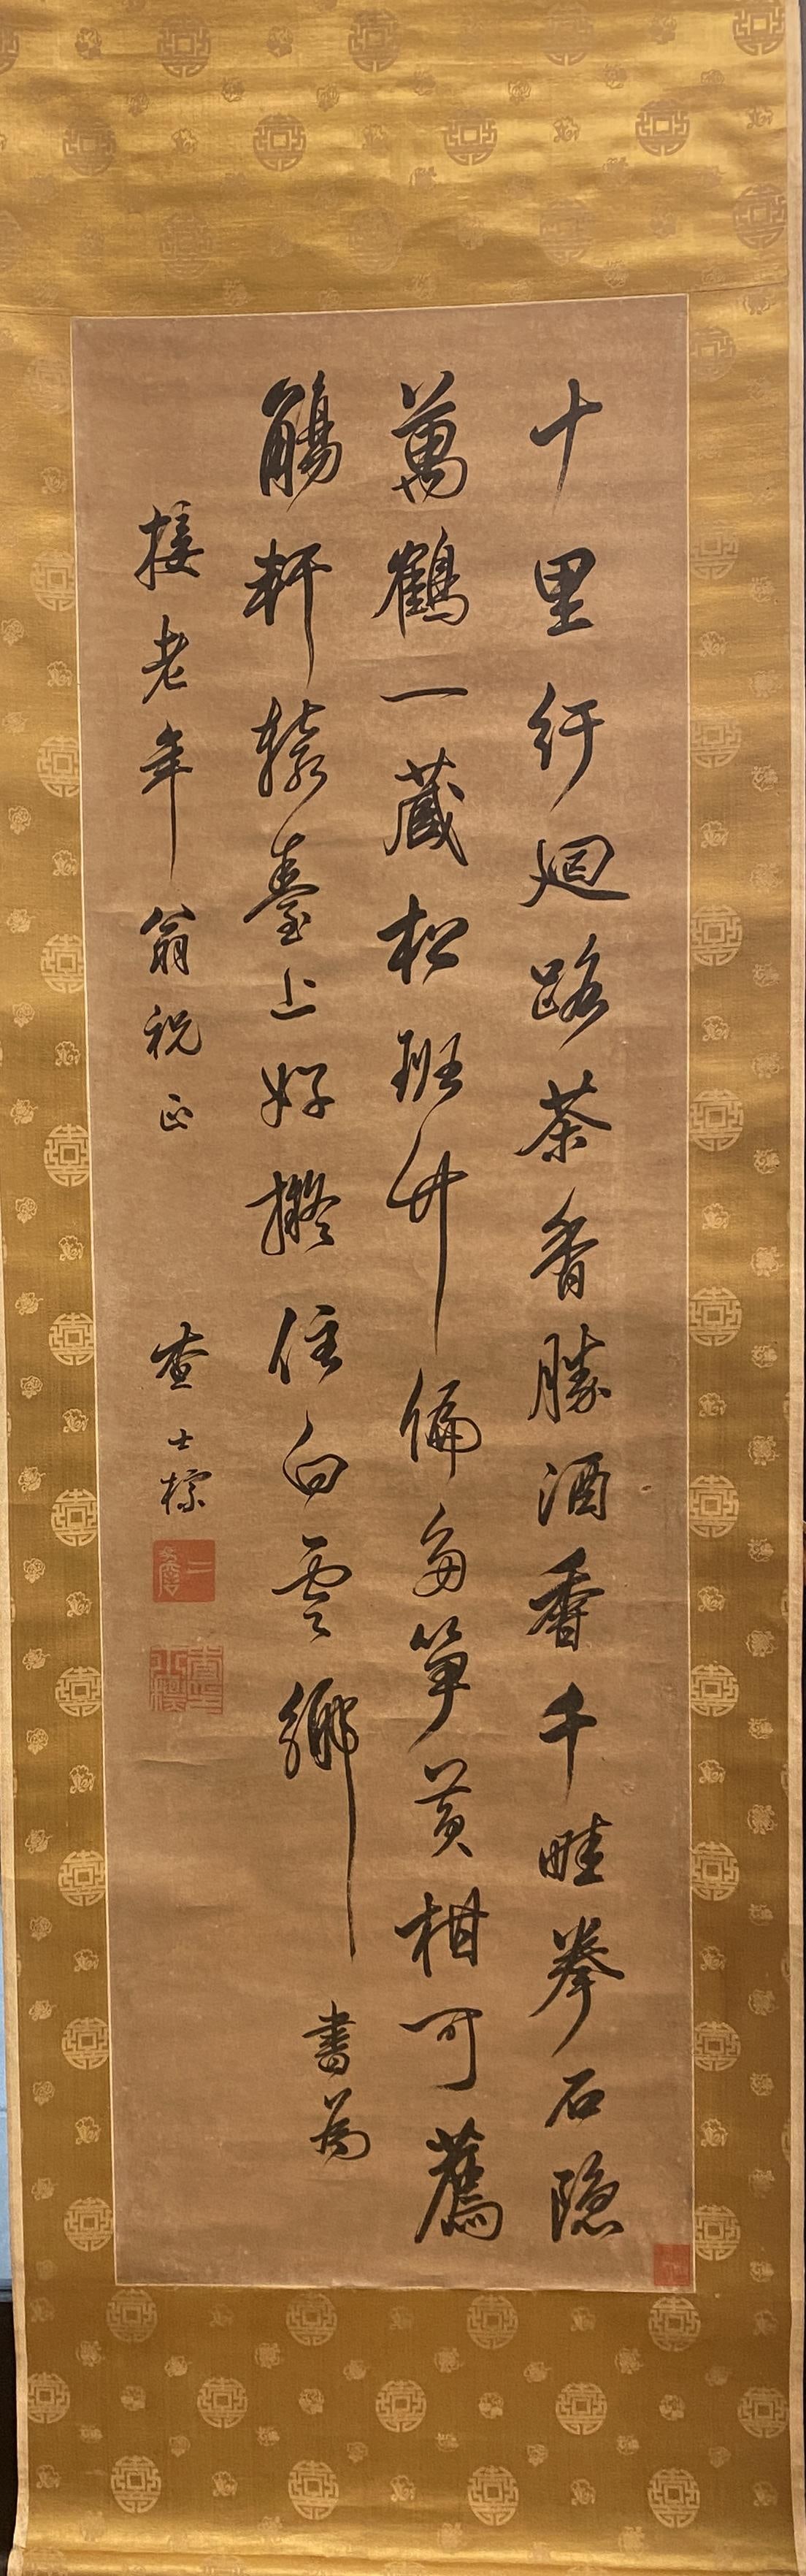 十里紆迴路茶香勝酒香千畦拳石隱
萬鶴一藏松班竹偏多筍黃柑可薦
觴軒轅臺上好擬住白雲鄉書為
老年翁祝正
查士標